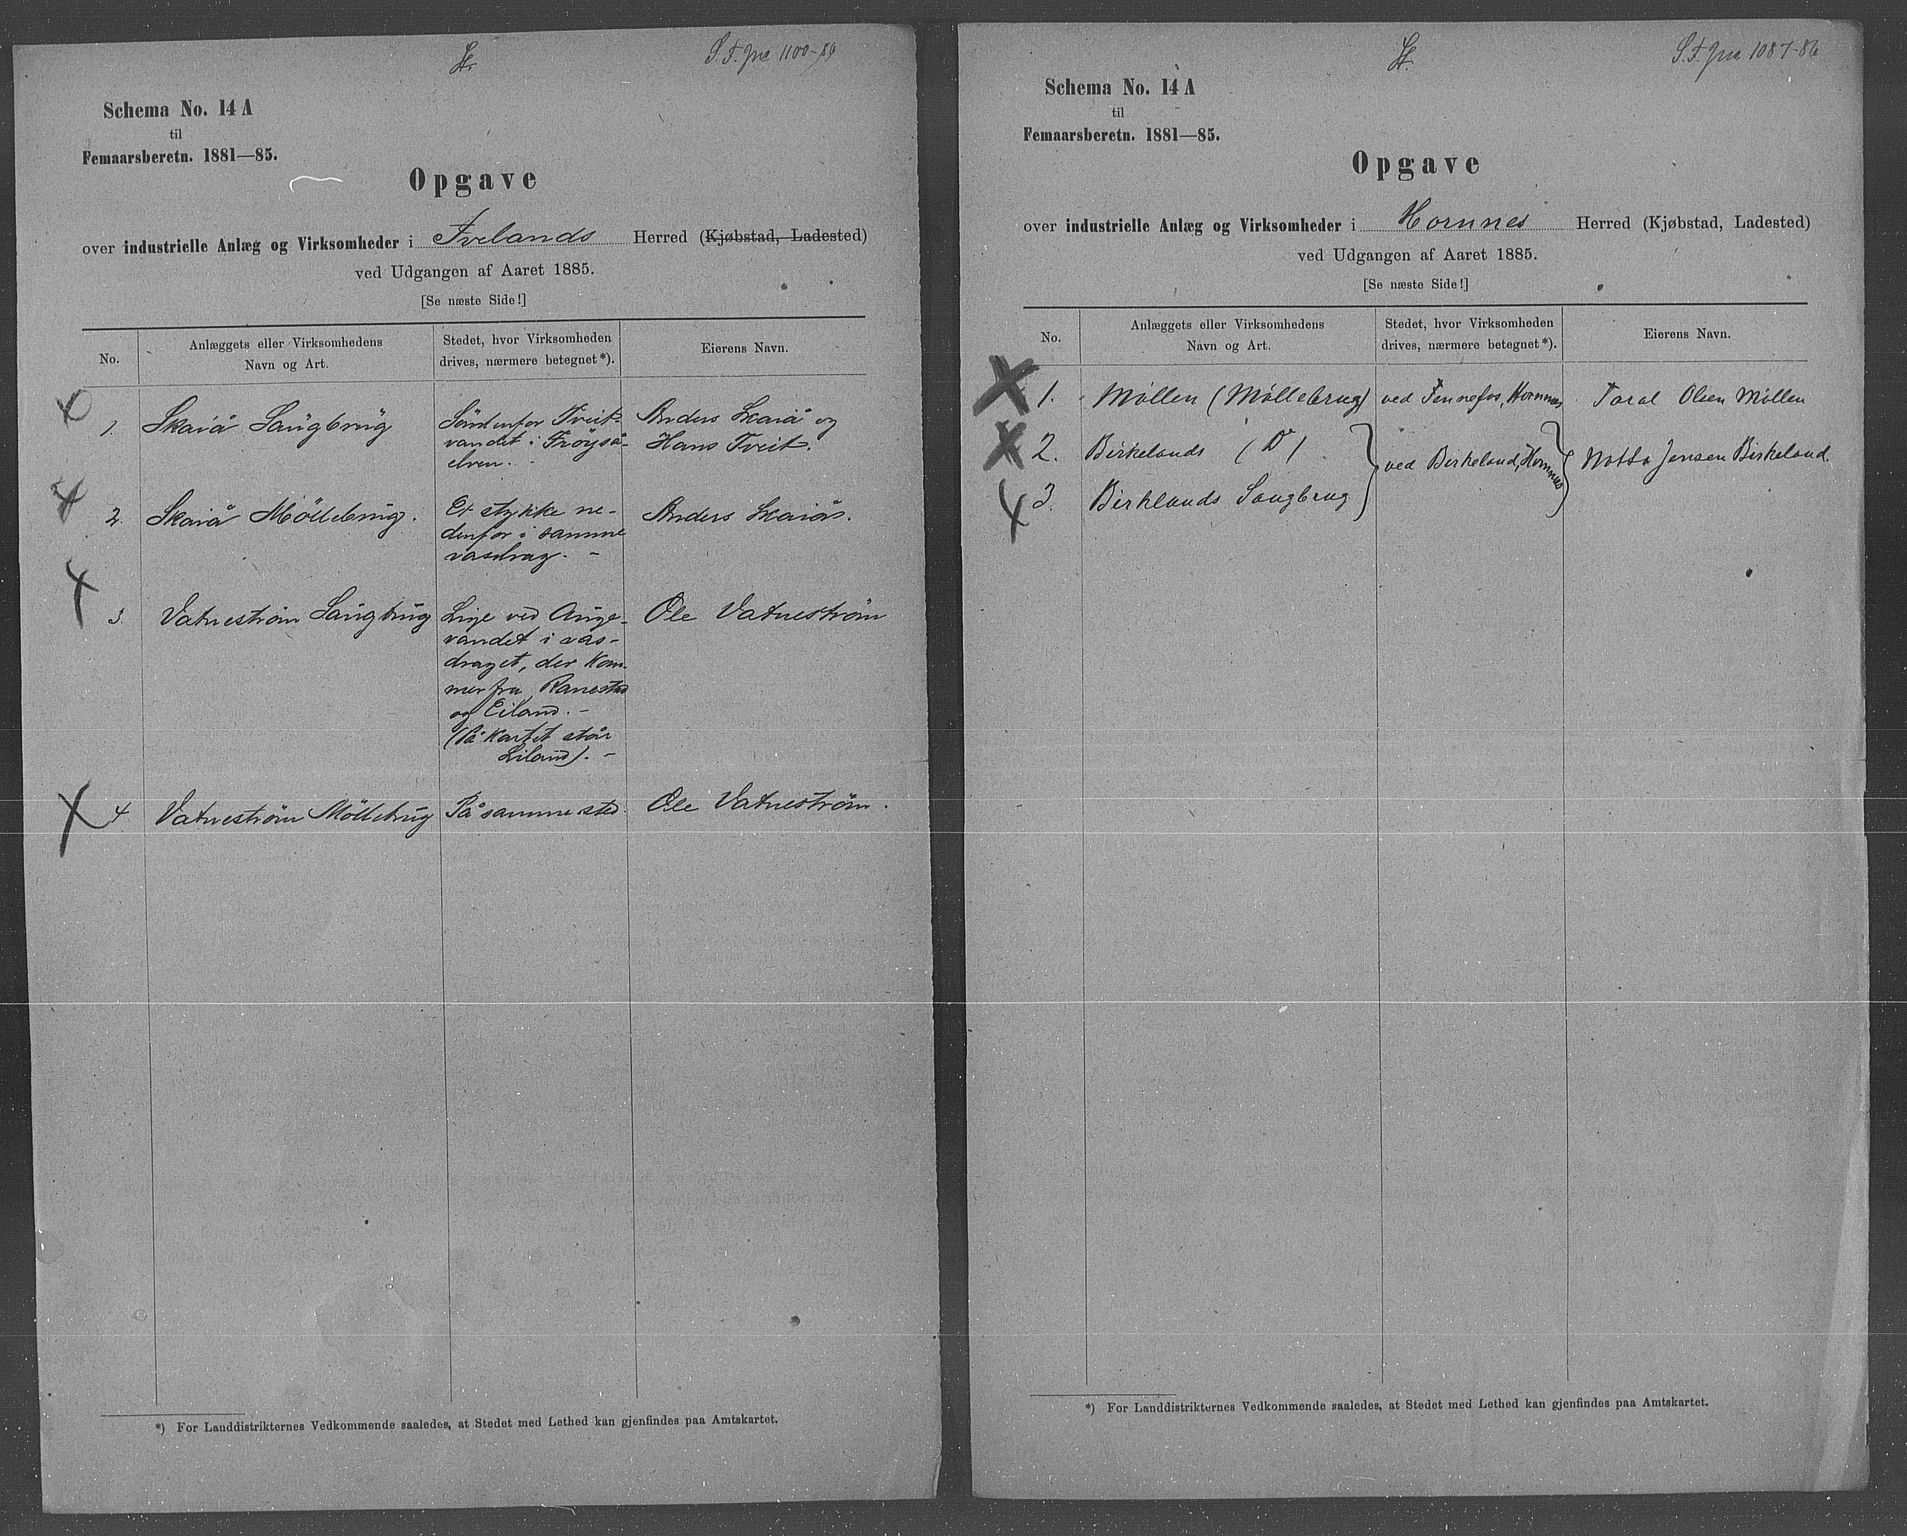 St.
S. F. Jnr 1100-86
Schema No. 14 A
til
Femaarsberetn. 1881—85.
Opgave
over industrielle Anlæg og Virksomheder i Ivelands Herred (Kjøbstad, Ladested)
ved Udgangen af Aaret 1885.
[Se næste Side!]
No.
Anlæggets eller Virksomhedens
Navn og Art.
Stedet, hvor Virksomheden
drives, nærmere betegnet*).
Eierens Navn.
1. Skaiå Saugbrug
Söndenfor Tveit-
vandet i Frøyså-
elven.
Anders Skaiå og
Hans Tveit.
2. Skaiå Möllebrug.
Et stykke ne-
denfor i samme
vasdrag. -
Anders Skaiå.
3. Vatneström Saugbrug
Lige ved Auge-
vandet i vas-
draget, der kom-
mer fra Ranestad
og Eiland. -
(På kartet står
Liland). -
Ole Vatneström
4. Vatneström Möllebrug
På samme sted.
Ole Vatneström.
*) For Landdistrikternes Vedkommende saaledes, at Stedet med Lethed kan gjenfindes paa Amtskartet.
St.
S. F. Jnr 1087-86
Schema No. 14 A
til
Femaarsberetn. 1881—85.
Opgave
over industrielle Anlæg og Virksomheder i Hornnes Herred (Kjøbstad, Ladested)
ved Udgangen af Aaret 1885.
[Se næste Side!]
No.
Anlæggets eller Virksomhedens
Navn og Art.
Stedet, hvor Virksomheden
drives, nærmere betegnet*).
Eierens Navn.
1. Møllen (Møllebrug) ved Fennefos, Hornnes Taral Olsen Møllen
2. Birkelands (Do) ved Birkeland, Hornnes Notto Jensen Birkeland.
3. Birklands Saugbrug
*) For Landdistrikternes Vedkommende saaledes, at Stedet med Lethed kan gjenfindes paa Amtskartet.